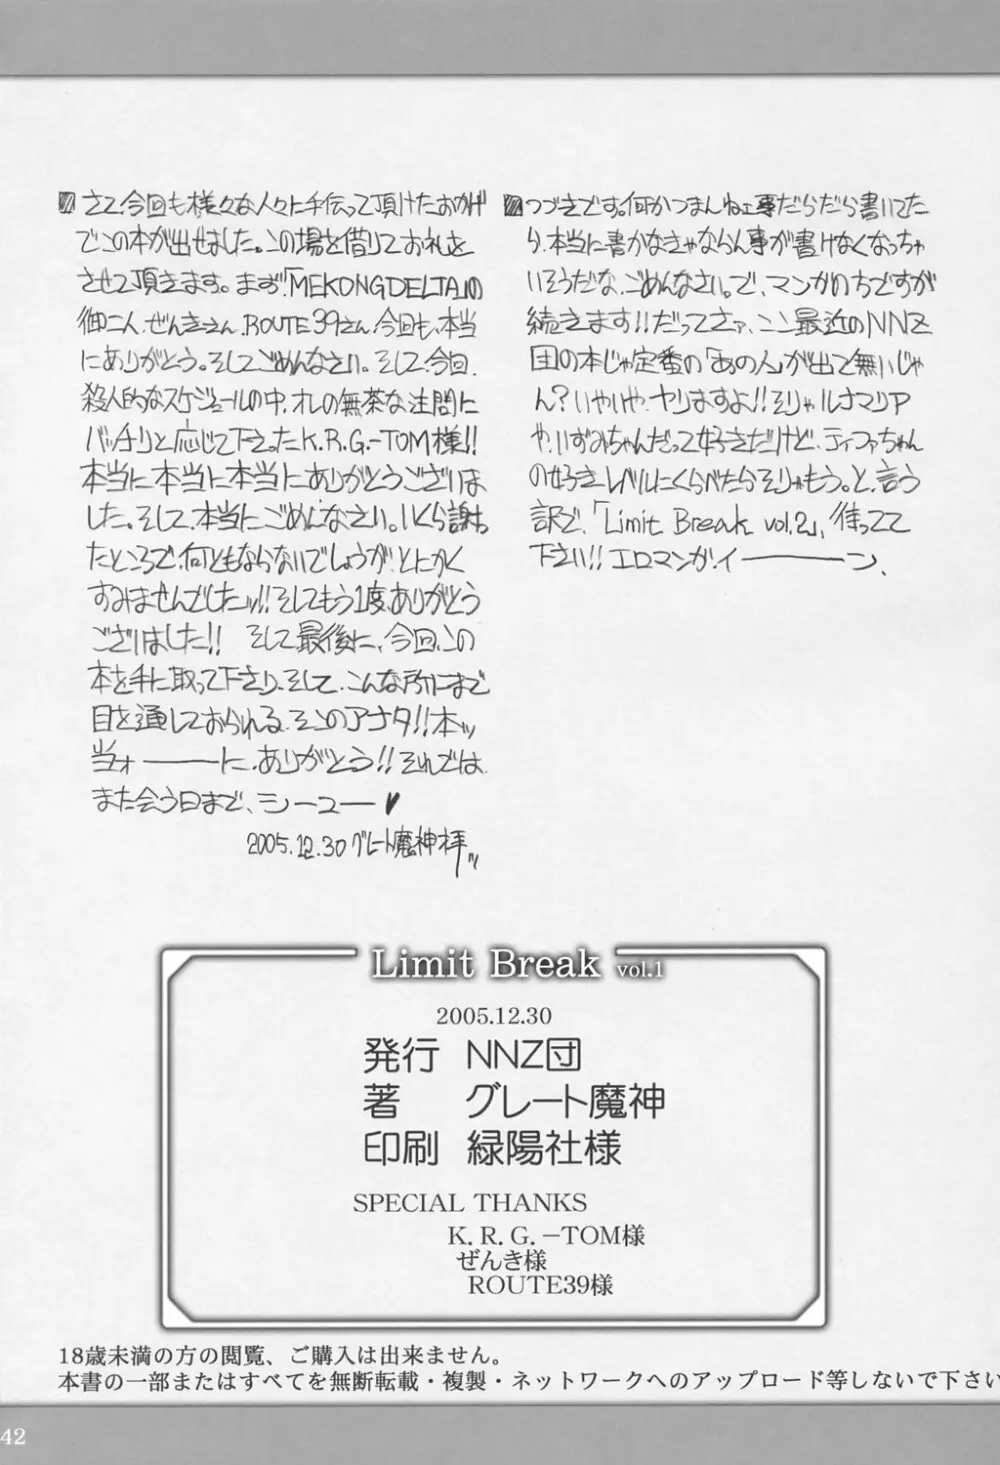 さて、今回も様々な人々に手伝って頂けたおかげ
でこの本が出せました。この場を借りてお礼を
させて頂きます。まず、「MEKONG DELTA」の
御二人、ぜんきさん、ROUTE39さん、今回も、本当
にありがとう。そしてごめんなさい。そして、今回、
殺人的なスケジュールの中、オレの無茶な注閗に
バッチリと応じて下さったK.R.G.-TOM様!!
本当に本当に本当にありがとうございま
した。そして、本当にごめんなさい。いくら謝っ
たところで、何ともならないでしょうが、とにかく
すみませんでしたッ!!そしてもう1度、ありがとう
ございました!! そして最後に、今回、この
本を手に取って下さり、そして、こんな所にまで
目を通しておられる、そこのアナタ!!本ッ
当ォーーに、ありがとう!!それでは、
また会う日まで、シーユー♥
2005.12.30 グレート魔神拝ッ
つづきです。何かつまんねェ事だらだら書いてた
ら、本当に書かなきゃならん事が書けなくなっちゃ
いそうだな、ごめんなさい。で、マンガのちですが
続きます!!だってさァ、ここ最近のNNZ
団の本じゃ定番の「あの人」が出て無いじゃ
ん?いやいや、ヤりますよ!!そりゃルナマリア
や、いずみちゃんだって好きだけど、ティファちゃん
の好きレベルにくらべたらそりゃもう。と、言う
訳で、「Limit Break vol.2」、待ってて
下さい!!エロマンガ、イーーン、
Limit Break vol.1
2005.12.30
発行 NNZ団
著 グレート魔神
印刷 緑陽社様
SPECIAL THANKS
K.R.G.-TOM様
ぜんき様
ROUTE39様
18歳未満の方の閲覧、ご購入は出来ません。
本書の一部またはすべてを無断転載・複製・ネットワークへのアップロード等しないで下さい
42